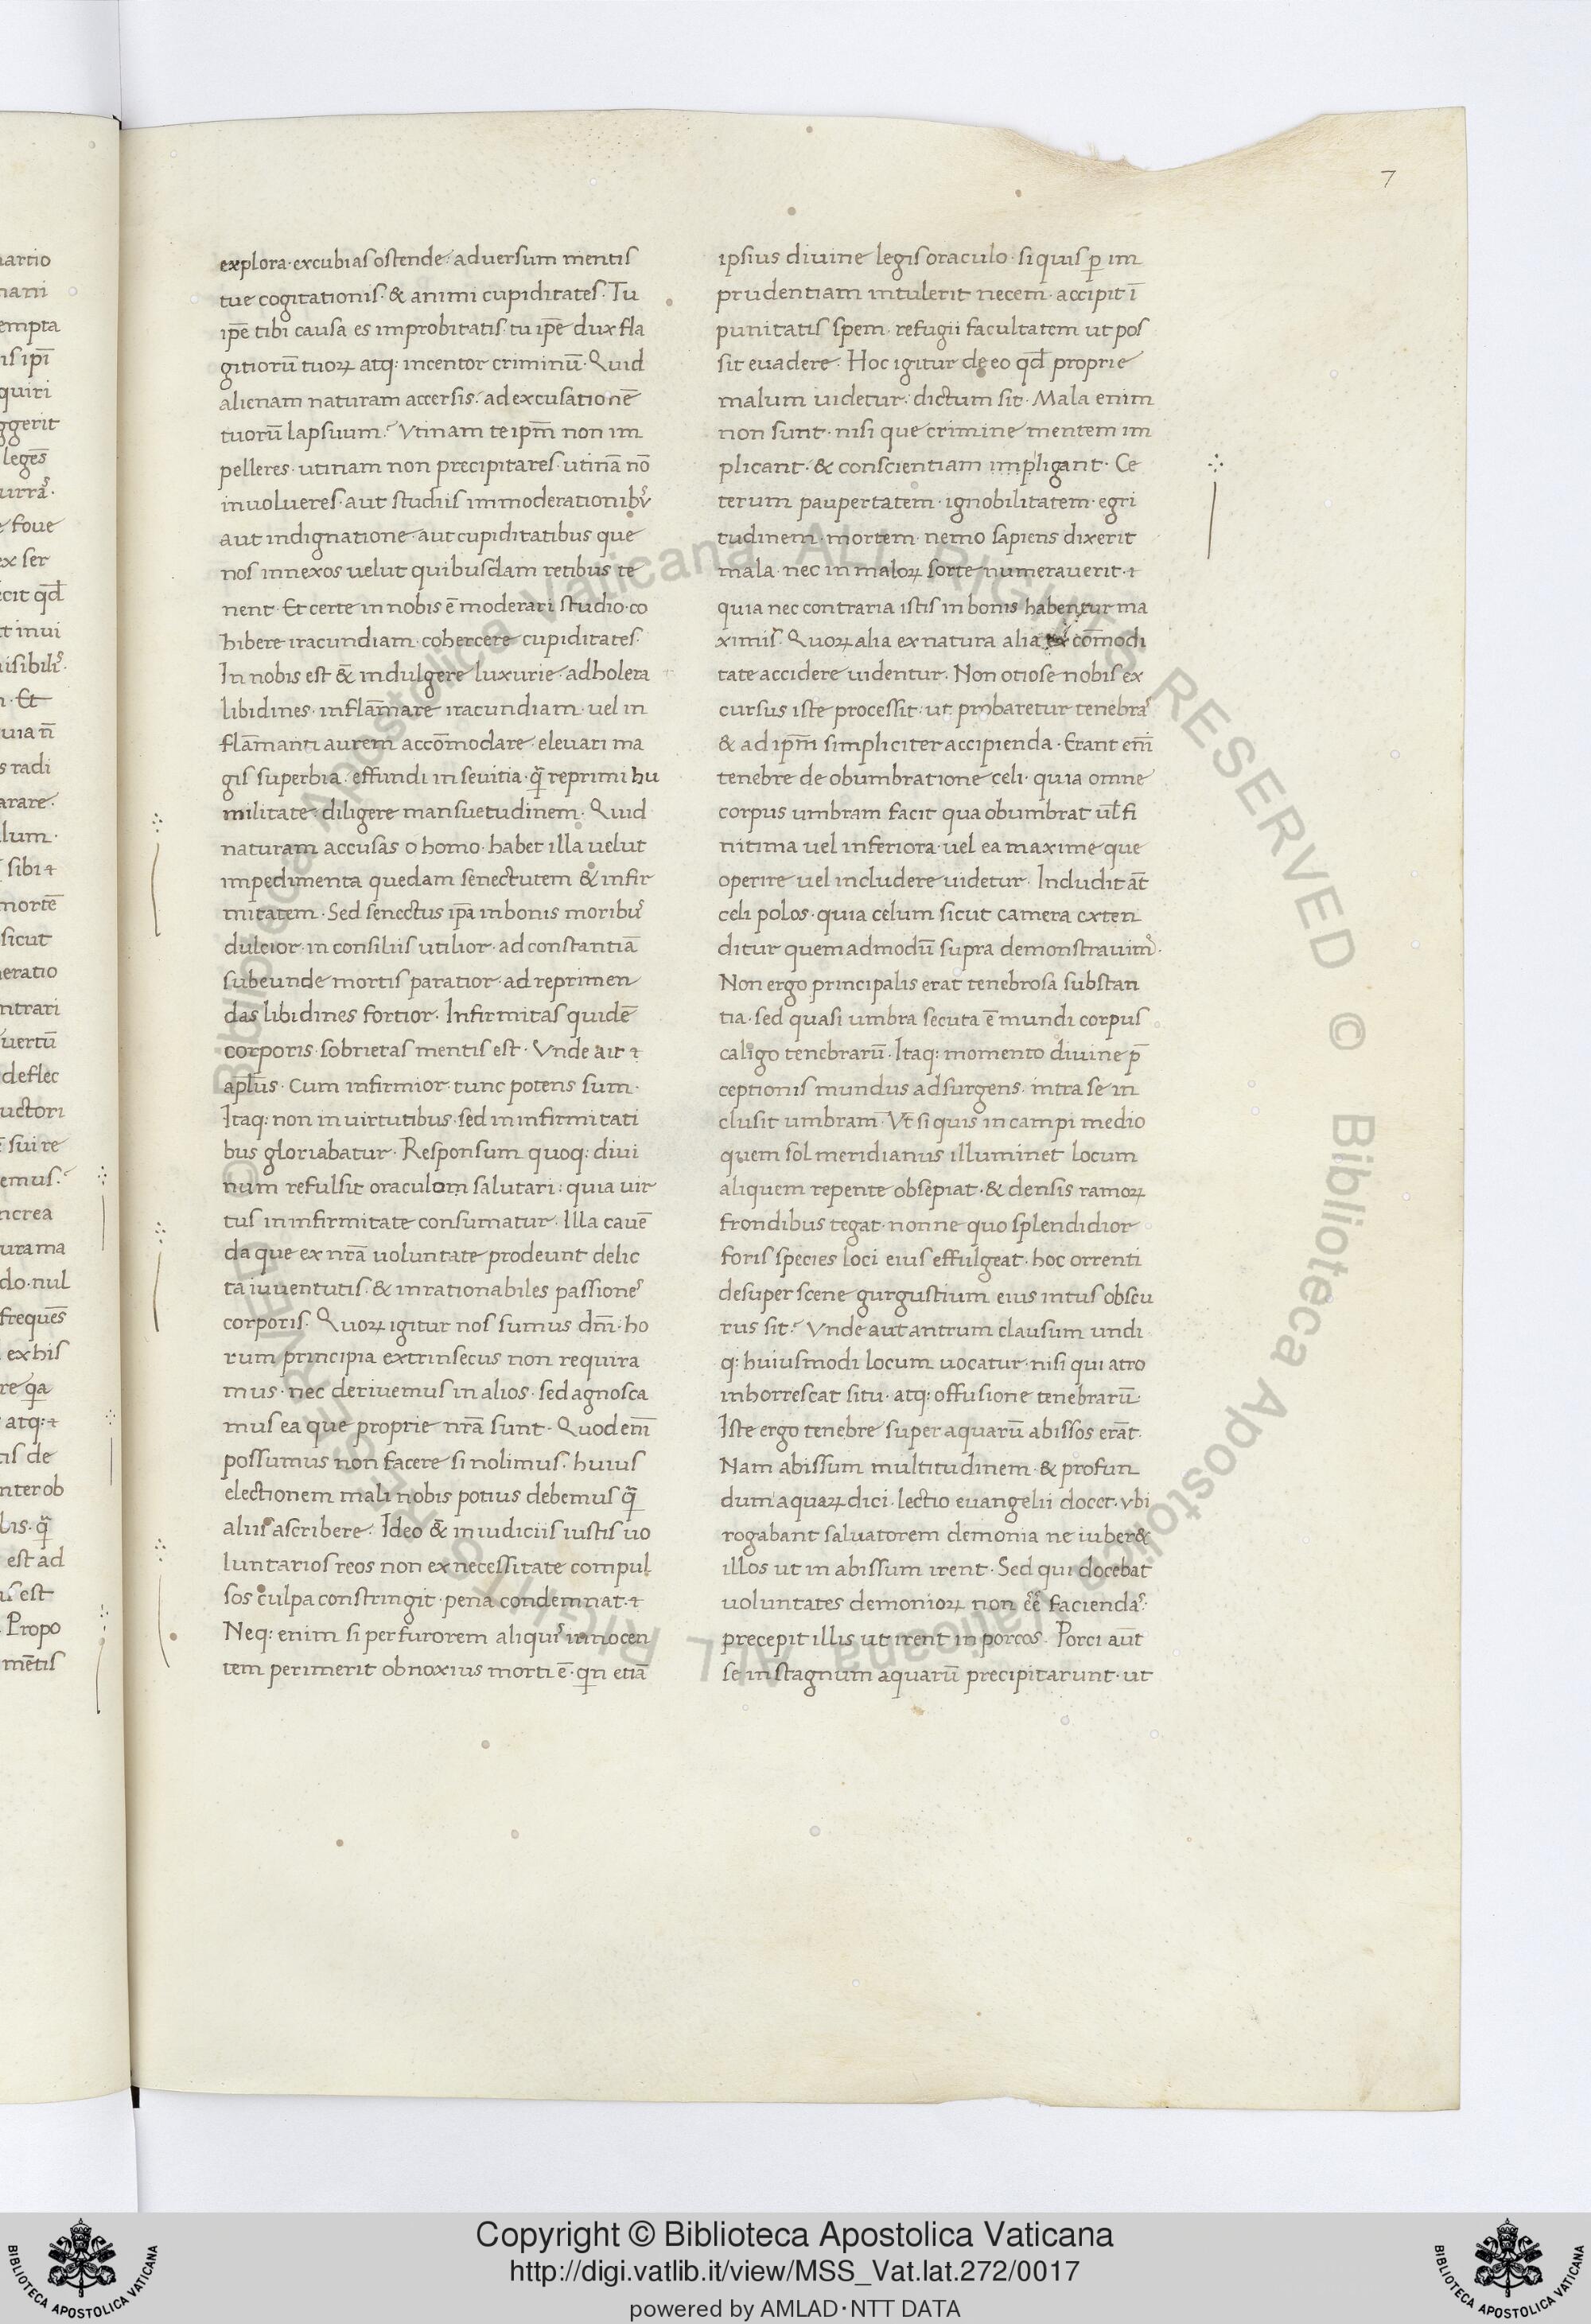 7
explora· excubias ostende· adversum mentis
tue cogitationis· & animi cupiditates· Tu
ip̄e tibi causa es improbitatis· tu ip̄e dux fla
gitiorū tuoꝝ atq: incentor criminū· Quid
alienam naturam accersis· ad excusationē
tuorū lapsuum? Vtinam te ip̄m non im
pelleres· utinam non precipitares· utinā nō
involueres· aut studiis immoderationibꝰ
aut indignatione· aut cupiditatibus que
nos innexos uelut quibusdam retibus te
nent· Et certe in nobis ē moderari studio· co
hibere iracundiam· cohercere cupiditates·
In nobis est &̄ indulgere luxurie· adholera
libidines· inflāmare iracundiam· uel in
flāmanti aurem accōmodare· elevari ma
gis superbia· effundi in sevitia· q̄ reprimi hu
militate· diligere mansuetudinem· Quid
naturam accusas o homo· habet illa uelut
impedimenta quedam senectutem & infir
mitatem· Sed senectus ip̄a in bonis moribꝰ
dulcior· in consiliis utilior· ad constantiā
subeunde mortis paratior· ad reprimen
das libidines fortior· Infirmitas quidē
corporis· sobrietas mentis est· Vnde ait ⁊
apl̄us· Cum infirmior· tunc potens sum·
Itaq: non in uirtutibus· sed in infirmitati
bus gloriabatur· Responsum quoq: diui
num refulsit oraculom salutari: quia uir
tus in infirmitate consumatur· Illa cauē
da que ex nr̄a uoluntate prodeunt delic
ta iuuentutis· & inrationabiles passioneˢ
corporis· Quoꝝ igitur nos sumus dn̄i· ho
rum principia extrinsecus non requira
mus· nec derivemus in alios· sed agnosca
mus ea que proprie nr̄a sunt· Quod eni̅
possumus non facere si nolimus· huius
electionem mali nobis potius debemus q̄
aliis ascribere· Ideo &̄ in iudiciis iustis uo
luntarios reos non ex necessitate compul
sos culpa constringit· pena condemnat· ⁊
Neq: enim si per furorem aliquiˢ innocen
tem perimerit obnoxius morti ē· qn etiā
ipsius divine legis oraculo· si quis ꝑ im
prudentiam intulerit necem· accipit ī
punitatis spem· refugii facultatem ut pos
sit evadere· Hoc igitur de eo qd̄ proprie
malum uidetur· dictum sit· Mala enim
non sunt· nisi que crimine mentem im
plicant· & conscientiam impligant· Ce
terum paupertatem· ignobilitatem· egri
tudinem· mortem· nemo sapiens dixerit
mala· nec in maloꝝ sorte numeraverit· ⁊
quia nec contraria istis in bonis habentur ma
ximis· Quoꝝ alia ex natura alia ex cōmodi
tate accidere uidentur· Non otiose nobis ex
cursus iste processit· ut probaretur tenebraˢ
& ad ip̄m simpliciter accipienda· Erant eni̅
tenebre de obumbratione celi· quia omne
corpus umbram facit qua obumbrat ul̄ fi
nitima uel inferiora· uel ea maxime que
operire uel includere uidetur· Includit āt
celi polos· quia celum sicut camera exten
ditur quemadmodū supra demonstravimꝰ·
Non ergo principalis erat tenebrosa substan
tia· sed quasi umbra secuta ē mundi corpus
caligo tenebrarū· Itaq: momento divine p̄
ceptionis mundus adsurgens· intra se in
clusit umbram· Vt si quis in campi medio
quem sol meridianus illuminet locum
aliquem repente obsepiat· & densis ramoꝝ
frondibus tegat· nonne quo splendidior
foris species loci eius effulgeat· hoc orrenti
desuper scene gurgustium eius intus obscu
rus sit? Vnde aut antrum clausum undi
q: huiusmodi locum uocatur· nisi qui atro
inhorrescat situ· atq: offusione tenebrarū·
Iste ergo tenebre super aquarū abissos erāt·
Nam abissum multitudinem· & profun
dum aquaꝝ dici· lectio euangelii docet· ubi
rogabant salvatorem demonia ne iuber&
illos ut in abissum irent· Sed qui docebat
uoluntates demonioꝝ non eē faciendaˢ·
precepit illis ut irent in porcos· Porci aūt
se in stagnum aquarū precipitarunt· ut
Copyright © Biblioteca Apostolica Vaticana
http://digi.vatlib.it/view/MSS_Vat.lat.272/0017
powered by AMLAD·NTT DATA